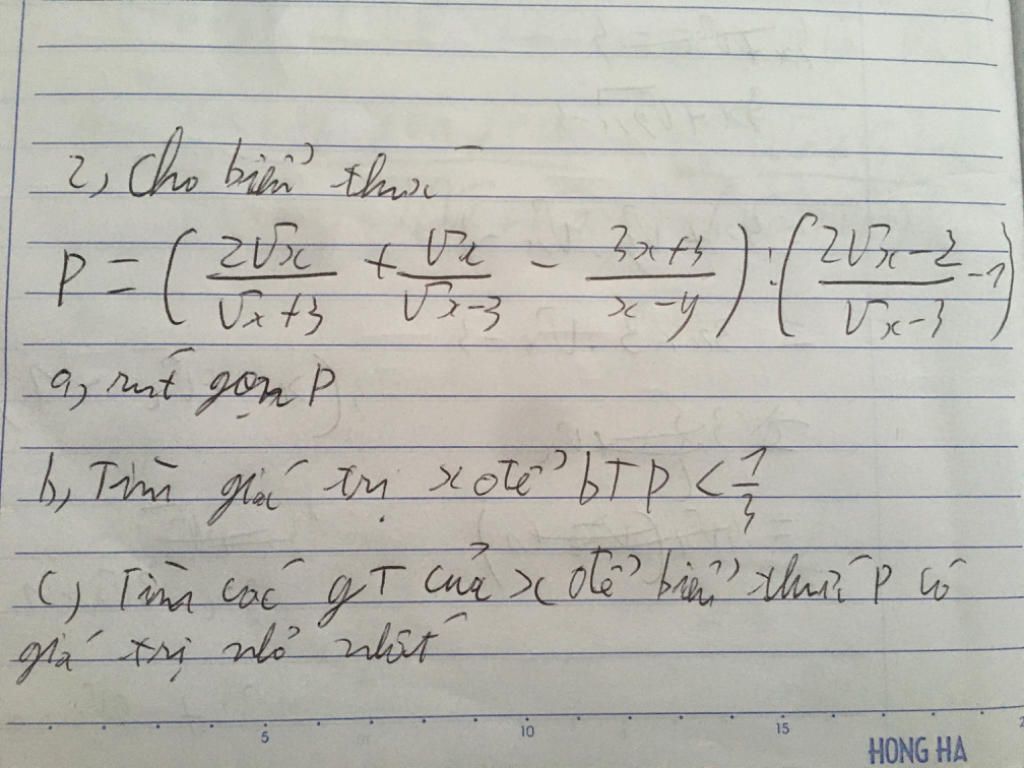 2, Cho biển thức
P = ( 2√x / √x+3 + √x / √x-3 - 3x+3 / x-y ) : ( 2√x-2 / √x-3 - 1 )
a, rút gọn P
b, Tìm giá trị x để bT P < 1/3
c, Tìm các gT của x để biển thức P có
giá trị nhỏ nhất
5 10 15
HONG HA